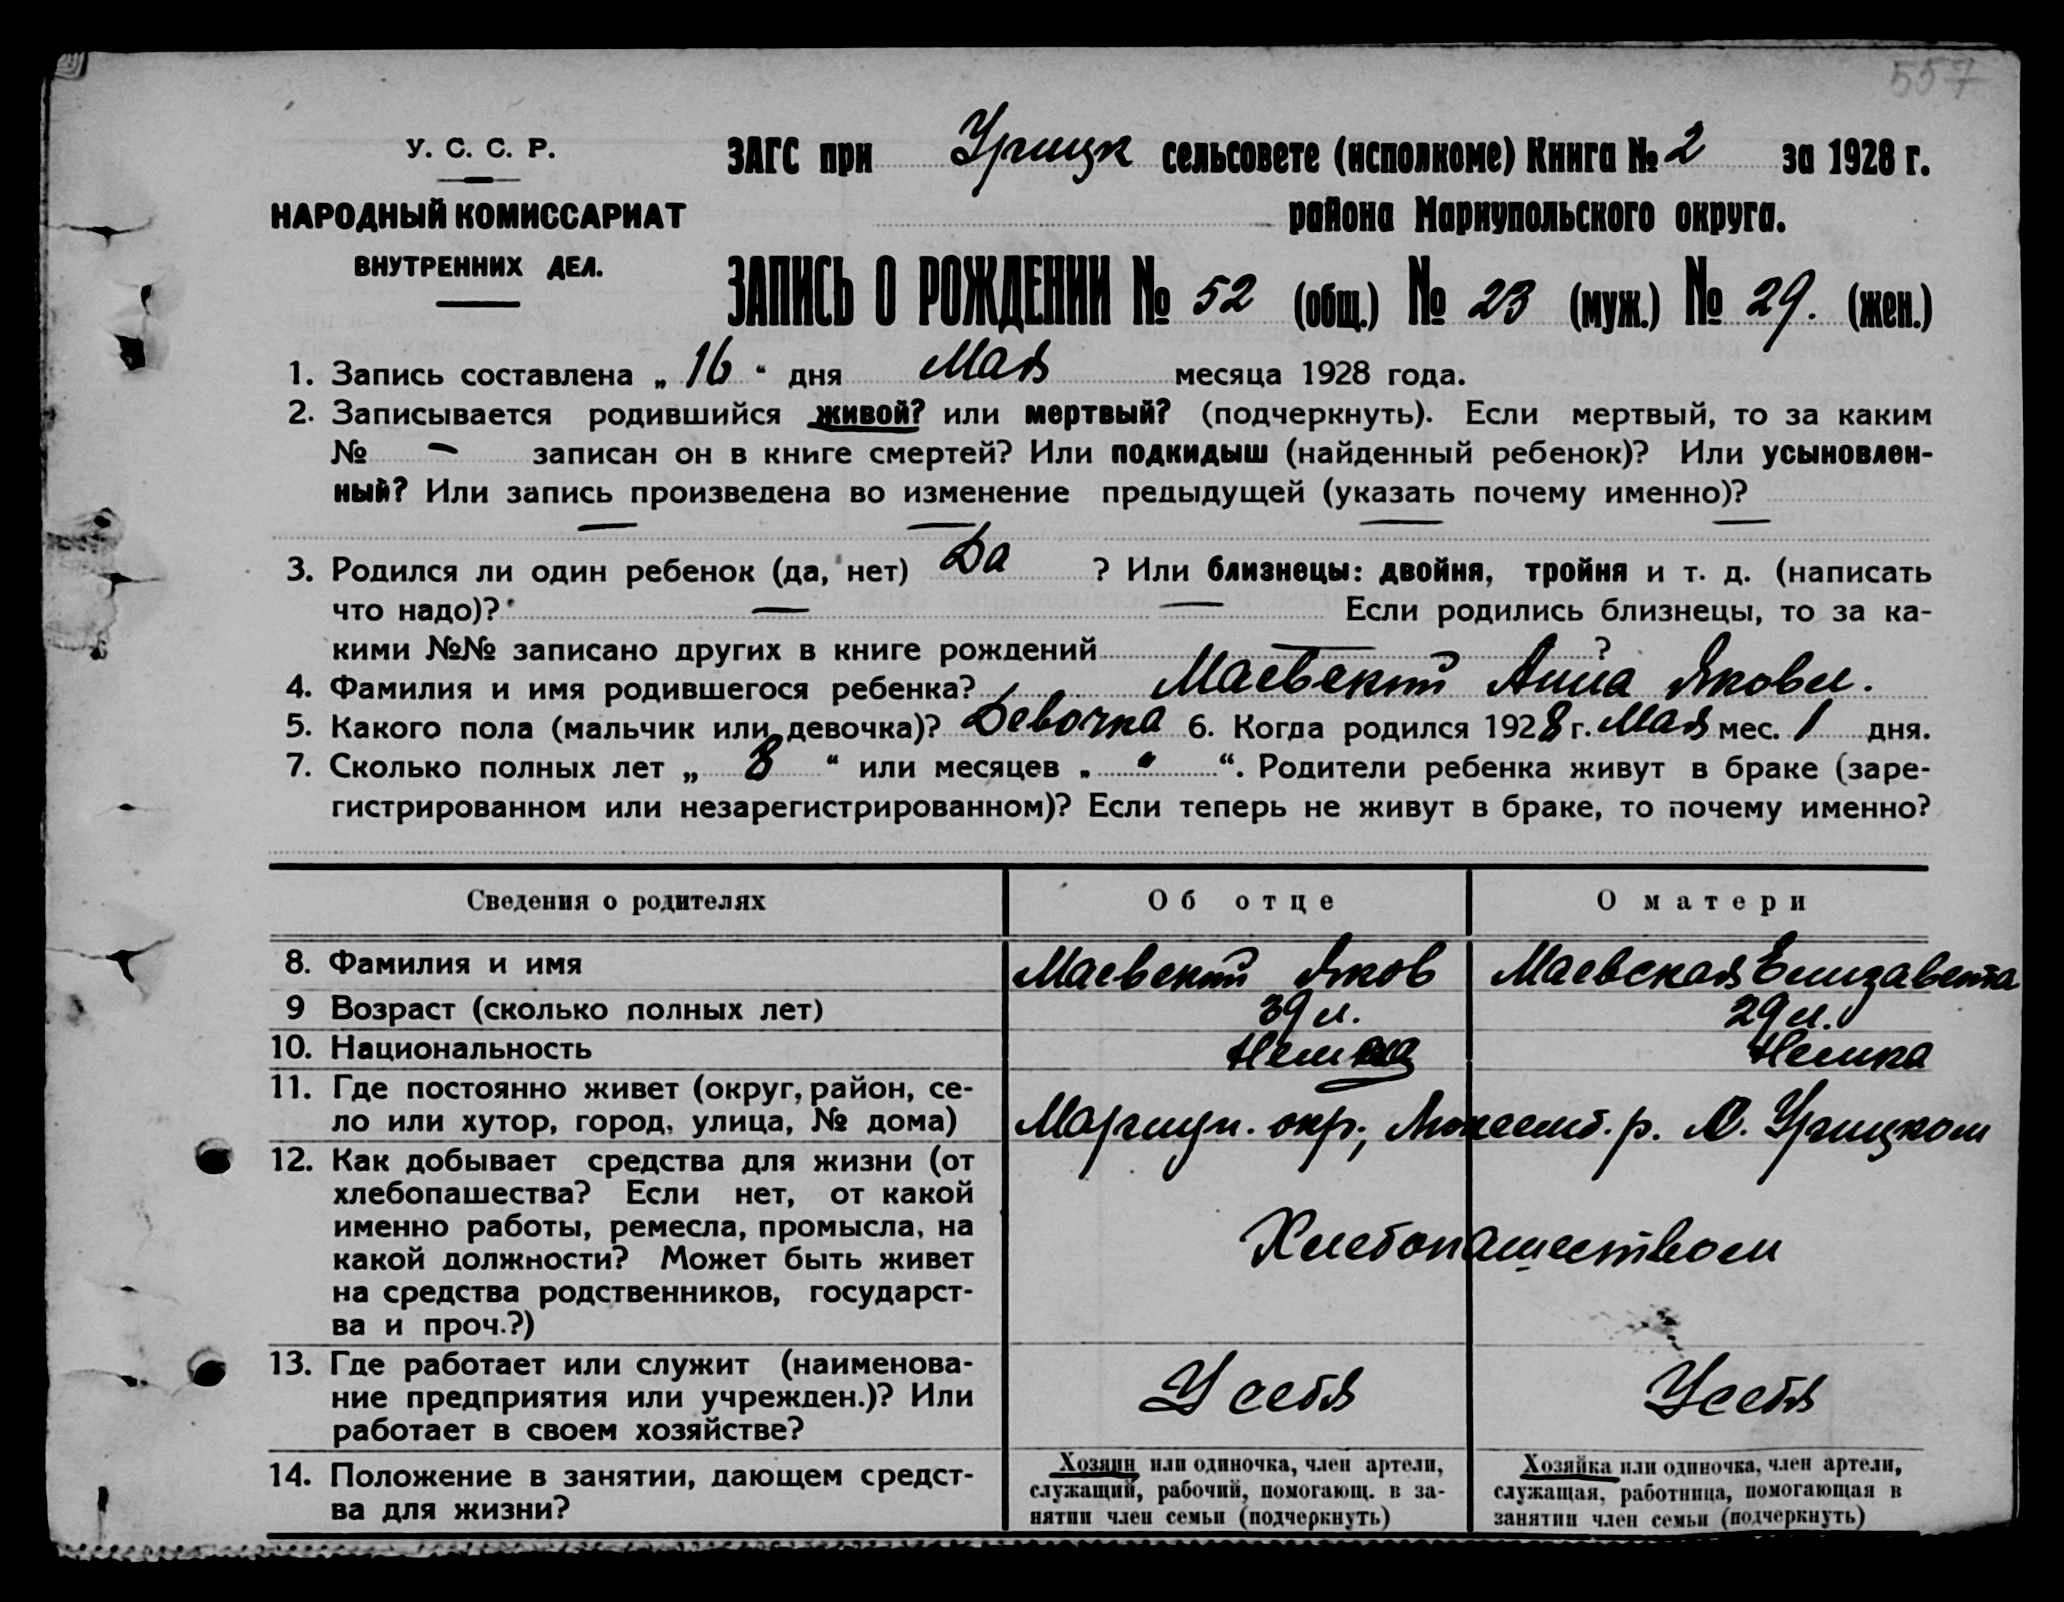 557
У. С. С. Р.
НАРОДНЫЙ КОМИССАРИАТ
ВНУТРЕННИХ ДЕЛ.
ЗАГС при Урицк сельсовете (исполкоме) Книга № 2 за 1928 г.
района Мариупольского округа.
ЗАПИСЬ О РОЖДЕНИИ № 52 (общ.) № 23 (муж.) № 29. (жен.)
1. Запись составлена „ 16 “ дня Мая месяца 1928 года.
2. Записывается родившийся живой? или мертвый? (подчеркнуть). Если мертвый, то за каким
№ — записан он в книге смертей? Или подкидыш (найденный ребенок)? Или усыновлен-
ный? Или запись произведена во изменение предыдущей (указать почему именно)?
— — — —
3. Родился ли один ребенок (да, нет) Да ? Или близнецы: двойня, тройня и т. д. (написать
что надо)? — — Если родились близнецы, то за ка-
кими №№ записано других в книге рождений — ?
4. Фамилия и имя родившегося ребенка? Маевский Анна Яковл.
5. Какого пола (мальчик или девочка)? Девочка 6. Когда родился 1928 г. Мая мес. 1 дня.
7. Сколько полных лет „ 8 “ или месяцев „ " “. Родители ребенка живут в браке (заре-
гистрированном или незарегистрированном)? Если теперь не живут в браке, то почему именно?
Сведения о родителях Об отце О матери
8. Фамилия и имя Маевский Яков Маевская Елизавета
9 Возраст (сколько полных лет) 39 л. 29 л.
10. Национальность Немка
11. Где постоянно живет (округ, район, се-
ло или хутор, город, улица, № дома) Мариуп. окр., Люксемб. р. С. Урицком
12. Как добывает средства для жизни (от
хлебопашества? Если нет, от какой
именно работы, ремесла, промысла, на
какой должности? Может быть живет
на средства родственников, государст-
ва и проч.?)
Хлебопашеством
13. Где работает или служит (наименова-
ние предприятия или учрежден.)? Или
работает в своем хозяйстве?
У себя У себя
14. Положение в занятии, дающем средст-
ва для жизни?
Хозяин или одиночка, член артели,
служащий, рабочий, помогающ. в за-
нятии член семьи (подчеркнуть)
Хозяйка или одиночка, член артели,
служащая, работница, помогающая в
занятии член семьи (подчеркнуть)